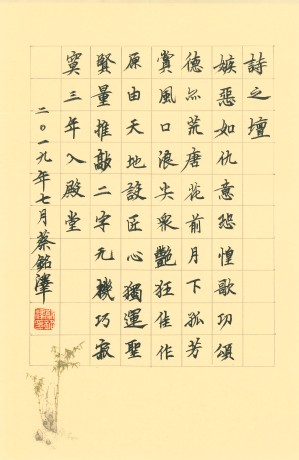 詩之壇
嫉惡如仇意恐惶歌功頌
德亦荒唐花前月下孤芳
賞風口浪尖眾艷狂佳作
原由天地設匠心獨運聖
賢量推敲二字无機巧寂
寞三年入殿堂
二〇一九年七月蔡銘澤